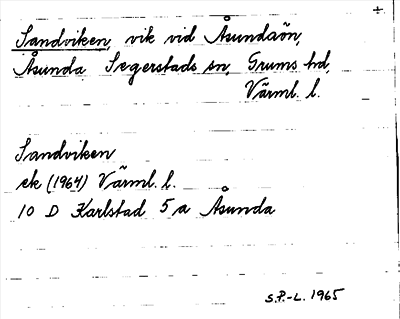 +
Sandviken, vik vid Åsundaön,
Åsunda Segerstads sn, Grums hd,
Värml. l.
Sandviken
ek (1964) Värml. l.
10 D Karlstad 5 a Åsunda
S.P.-L. 1965